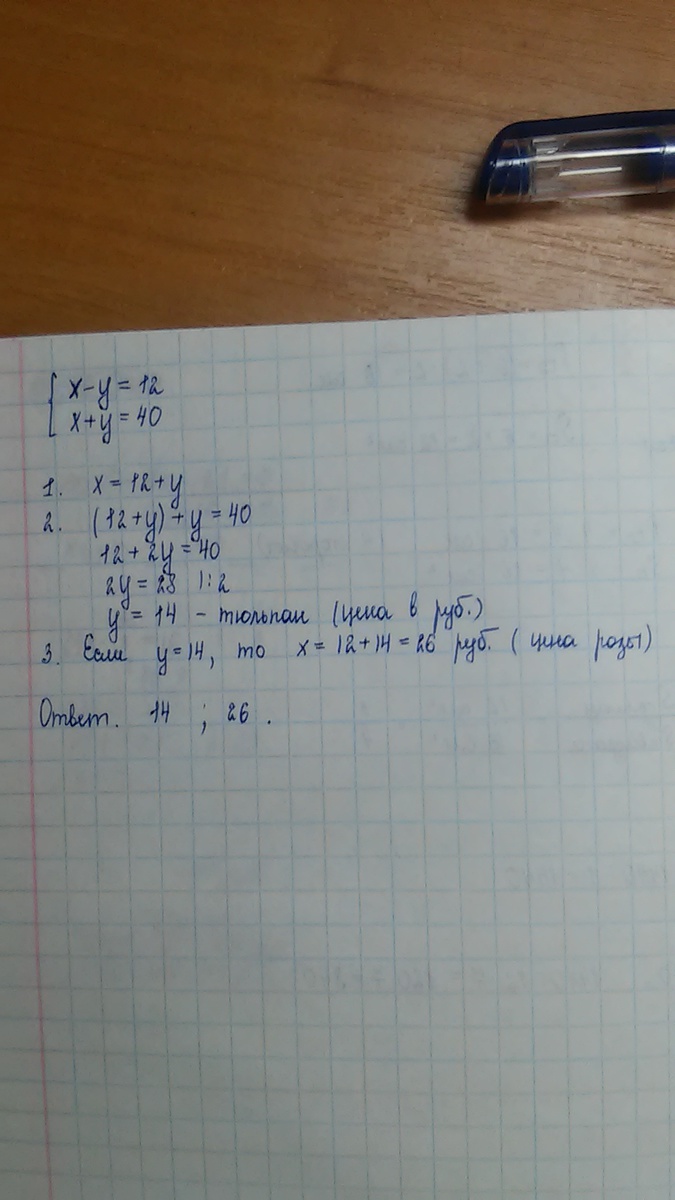 { x-y = 12
x+y = 40
1. x = 12+y
2. (12+y)+y = 40
12+2y = 40
2y = 28 |:2
y = 14 - тюльпан (цена в руб.)
3. Если y=14, то x = 12+14 = 26 руб. (цена розы)
Ответ. 14 ; 26 .